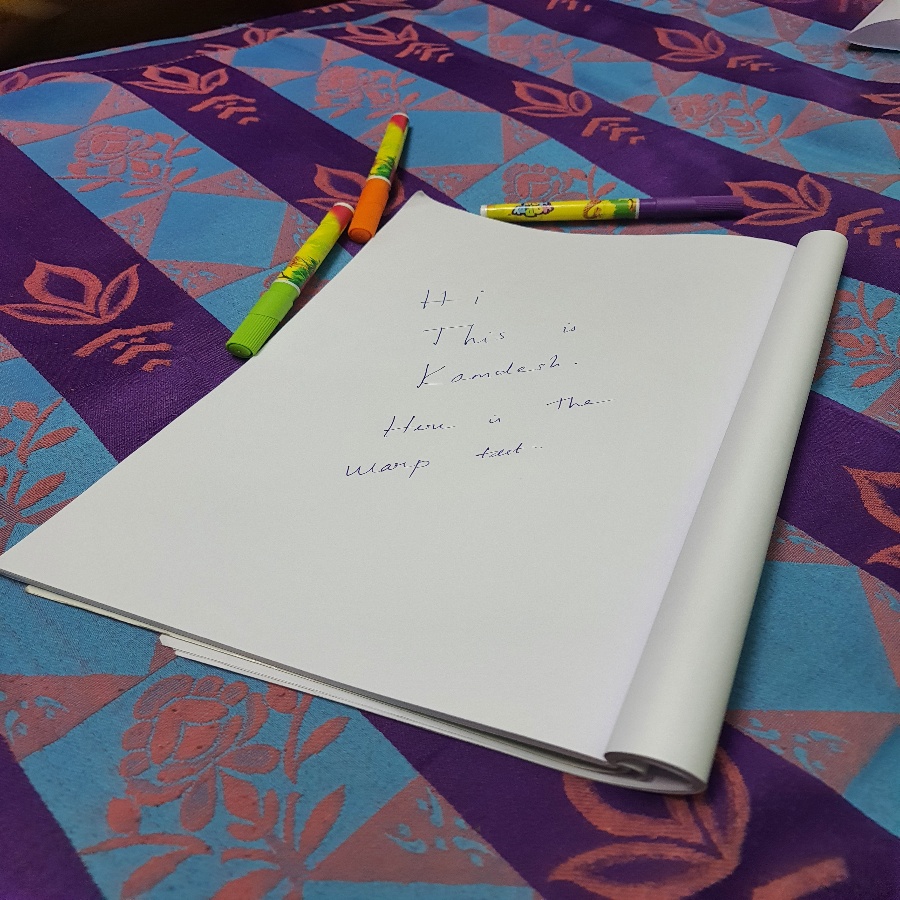 Hi
This is
Kamalesh.
Here is the...
warp text...